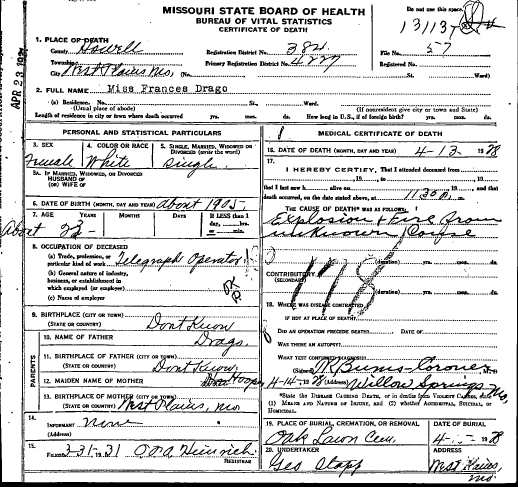 MISSOURI STATE BOARD OF HEALTH
BUREAU OF VITAL STATISTICS
CERTIFICATE OF DEATH
Do not use this space.
1. PLACE OF DEATH
County Howell
Registration District No. 384
File No. 57
Township
Primary Registration District No. 4227
Registered No.
City West Plains Mo, (No. St. Ward)
APR 23 1931
2. FULL NAME Miss Frances Drago
(a) Residence. No. St., Ward.
(Usual place of abode)
(If nonresident give city or town and State)
Length of residence in city or town where death occurred yrs. mos. ds. How long in U.S., if of foreign birth? yrs. mos. ds.
PERSONAL AND STATISTICAL PARTICULARS
3. SEX
4. COLOR OR RACE
5. SINGLE, MARRIED, WIDOWED OR DIVORCED (write the word)
Female White Single
5A. IF MARRIED, WIDOWED, OR DIVORCED
HUSBAND OF
(OR) WIFE OF
6. DATE OF BIRTH (MONTH, DAY AND YEAR) about 1905
7. AGE YEARS MONTHS DAYS If LESS than 1 day, hrs. or min.
About 22
8. OCCUPATION OF DECEASED
(a) Trade, profession, or particular kind of work Telegraph Operator
(b) General nature of industry, business, or establishment in which employed (or employer)
(c) Name of employer
9. BIRTHPLACE (CITY OR TOWN)
(STATE OR COUNTRY) Dont Know
PARENTS
10. NAME OF FATHER Drago.
11. BIRTHPLACE OF FATHER (CITY OR TOWN)
(STATE OR COUNTRY) Dont Know
12. MAIDEN NAME OF MOTHER Hooper
13. BIRTHPLACE OF MOTHER (CITY OR TOWN)
(STATE OR COUNTRY) West Plains, Mo
14.
INFORMANT
(Address)
15.
FILED 3-31-31 Heinrich
REGISTRAR
MEDICAL CERTIFICATE OF DEATH
16. DATE OF DEATH (MONTH, DAY AND YEAR) 4-13- 1928
17.
I HEREBY CERTIFY, That I attended deceased from
, 19 , to , 19
that I last saw h alive on , 19 , and that
death occurred, on the date stated above, at 11:30 P m.
THE CAUSE OF DEATH WAS AS FOLLOWS:
Explosion & Fire from
unknown Cause
178
(duration) yrs. mos. ds.
CONTRIBUTORY
(SECONDARY)
(duration) yrs. mos. ds.
18. WHERE WAS DISEASE CONTRACTED
IF NOT AT PLACE OF DEATH?
DID AN OPERATION PRECEDE DEATH? DATE OF
WAS THERE AN AUTOPSY?
WHAT TEST CONFIRMED DIAGNOSIS?
(Signed) Burns-Coroner
4-14-1928 (Address) Willow Springs Mo,
*State the DISEASE CAUSING DEATH, or in deaths from VIOLENT CAUSES, state
(1) MEANS AND NATURE OF INJURY, and (2) whether ACCIDENTAL, SUICIDAL, or
HOMICIDAL.
19. PLACE OF BURIAL, CREMATION, OR REMOVAL
DATE OF BURIAL
Oak Lawn Cem.
1928
20. UNDERTAKER
ADDRESS
Geo Stapp
West Plains, Mo